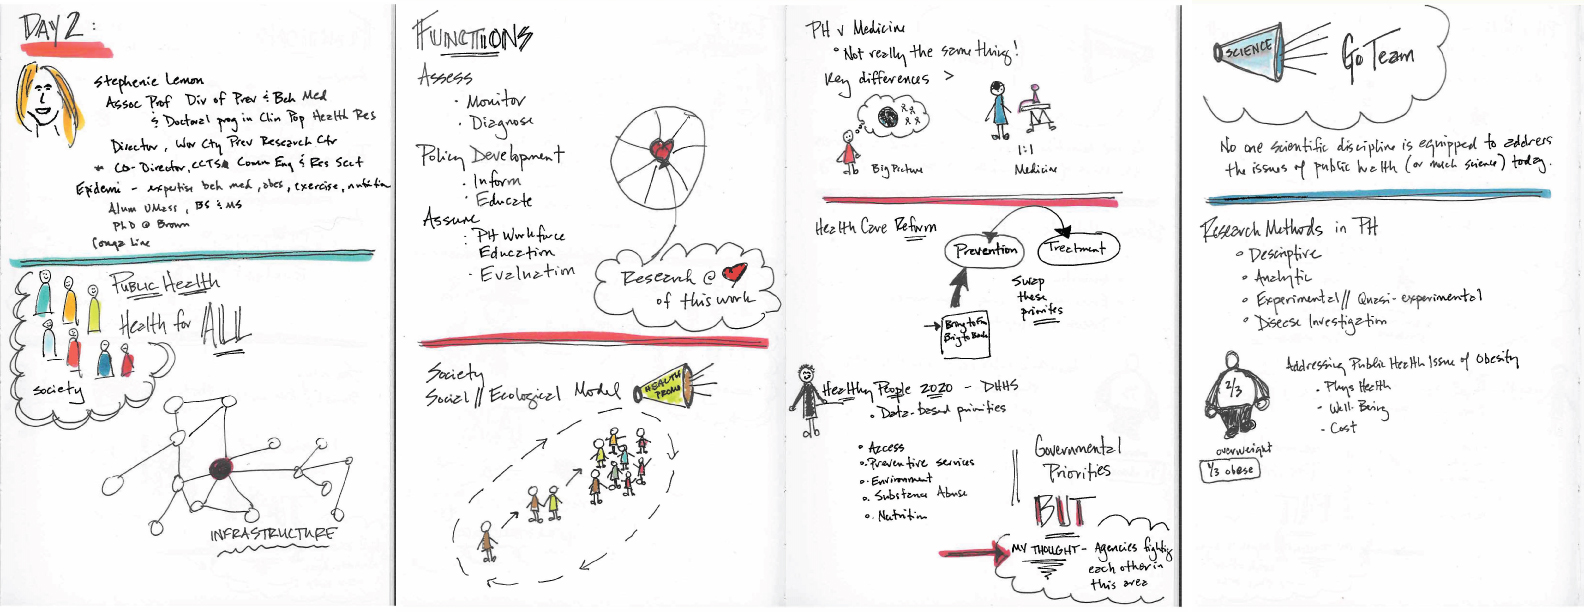 DAY 2 :
Stephenie Lemon
Assoc Prof Div of Prev & Beh Med
& Doctoral prog in Clin Pop Health Res
Director, Wor Cty Prev Research Ctr
* Co-Director, CCTS Comm Eng & Res Sect
Epidemi - expertise beh med, obes, exercise, nutrition
Alum UMass, BS & MS
PhD @ Brown
Conga Line
PUBLIC HEALTH
Health for ALL
Society
INFRASTRUCTURE
FUNCTIONS
Assess
· Monitor
· Diagnose
Policy Development
· Inform
· Educate
Assure
· PH Workforce
Education
· Evaluation
Research @
of this work
Society
Social // Ecological Model
HEALTH
PROMO
PH v Medicine
• Not really the same thing!
Key differences >
Big Picture
1:1
Medicine
Health Care Reform
Prevention
Treatment
Swap
these
priorites
Healthy People 2020 - DHHS
• Data-based priorities
• Access
• Preventive services
• Environment
• Substance Abuse
• Nutrition
Governmental
Priorities
BUT
MY THOUGHT - Agencies fighting
each other in
this area
SCIENCE
Go Team
No one scientific discipline is equipped to address
the issues of public health (or much science) today.
Research Methods in PH
• Descriptive
• Analytic
• Experimental // Quasi-experimental
• Disease Investigation
2/3
overweight
1/3 obese
Addressing Public Health Issue of Obesity
- Phys Health
- Well-Being
- Cost